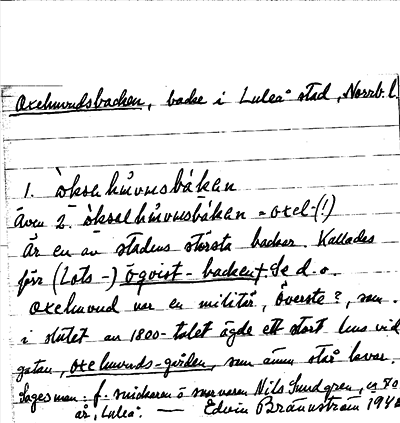 Oxehuvudsbacken, backe i Luleå stad, Norrb. l.
1. òksehʉ̀vʉsbákan
Även 2. òkselhʉ̀vʉsbákan = oxel-(!)
Är en av stadens största backar. Kallades
förr (Lots-) öqvist-backen, Se d. o.
Oxehuvud var en militär, överste?, som
i slutet av 1800-talet ägde ett stort hus vid
gatan, oxehuvuds-gården, som ännu står kvar.
Sagesman: f. snickaren o murvaren Nils Sundgren, ca 80
år, Luleå. — Edvin Brännström 194